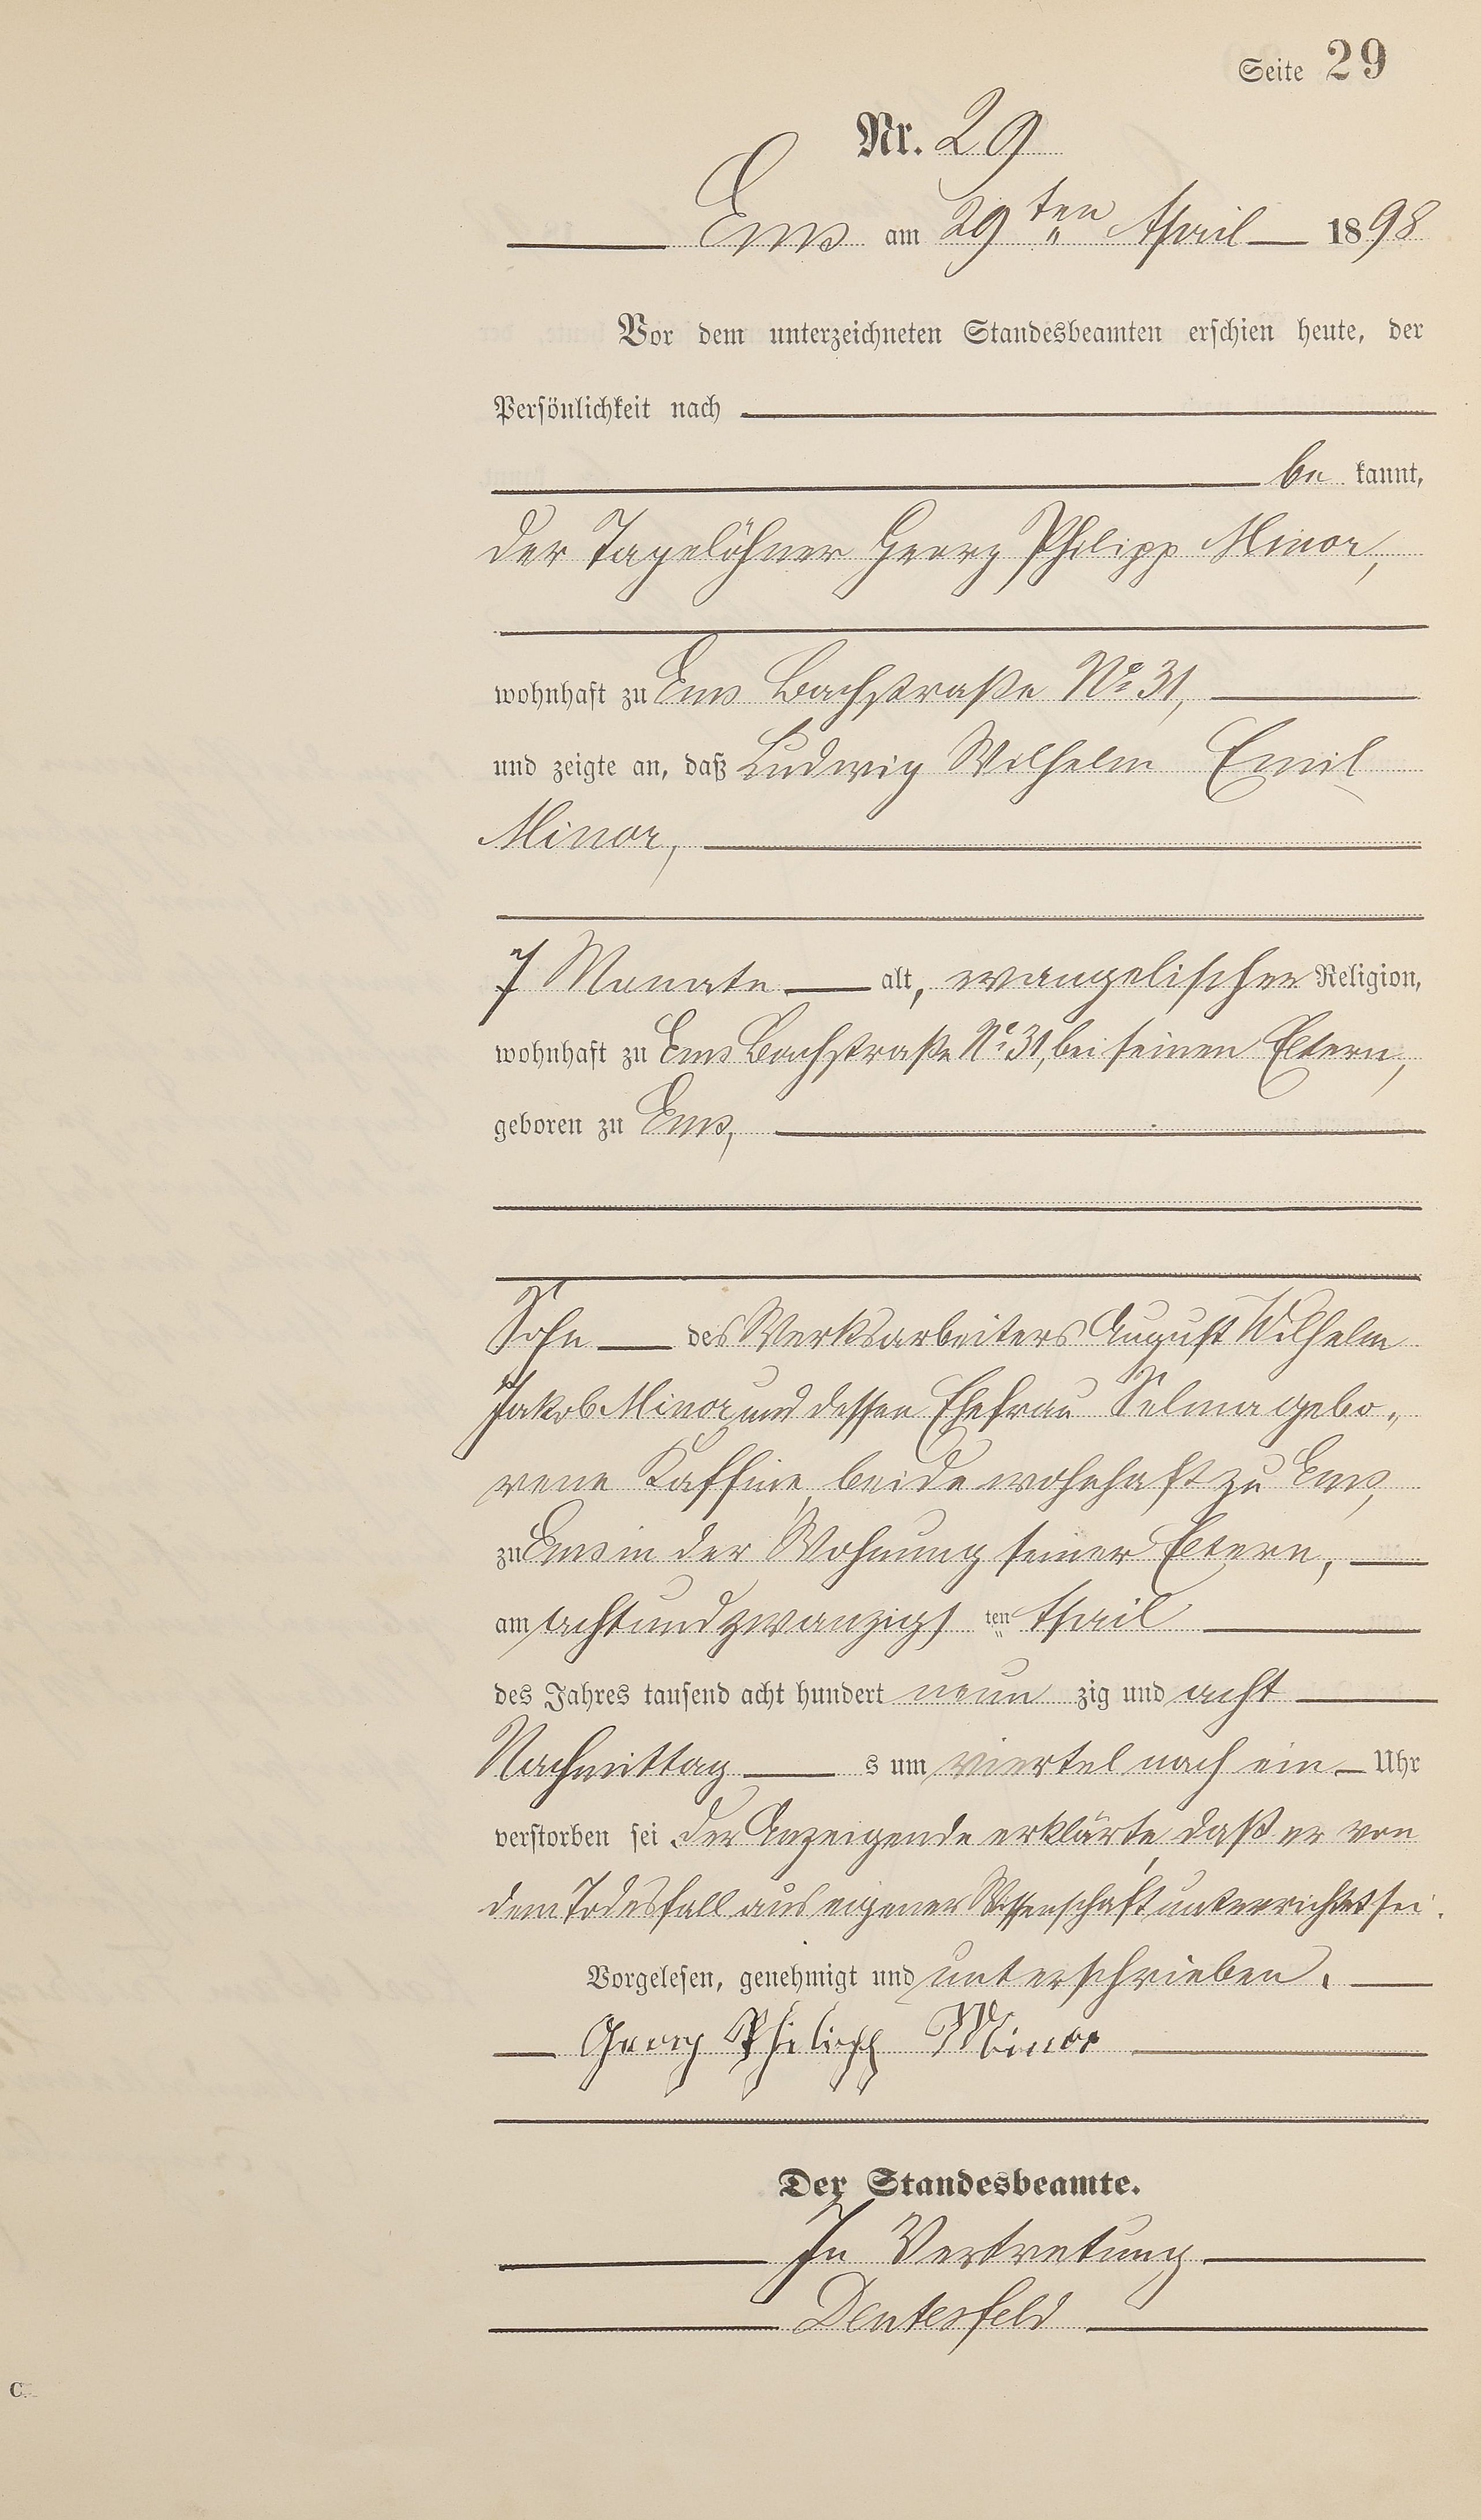 Seite 29
Nr. 29
Ems am 29ten April 1898
Vor dem unterzeichneten Standesbeamten erschien heute, der
Persönlichkeit nach
be kannt,
der Tagelöhner Georg Philipp Minor,
wohnhaft zu Ems Bachstraße No 31,
und zeigte an, daß Ludwig Wilhelm Emil
Minor,
7 Monate alt, evangelischer Religion,
wohnhaft zu Ems Bachstraße No 31, bei seinen Eltern,
geboren zu Ems,
Sohn des Werksarbeiters August Wilhelm
Jakob Minor und dessen Ehefrau Selma gebo„
rene Kaffine, beide wohnhaft zu Ems,
zu Ems in der Wohnung seiner Eltern,
am achtundzwanzigs ten April
des Jahres tausend acht hundert neun zig und acht
Nachmittag s um viertel nach ein Uhr
verstorben sei. Der Anzeigende erklärte, daß er von
dem Todesfall aus eigener Wissenschaft unterrichtet sei.
Vorgelesen, genehmigt und unterschrieben.
Georg Philipp Minor
Der Standesbeamte.
In Vertretung
C.